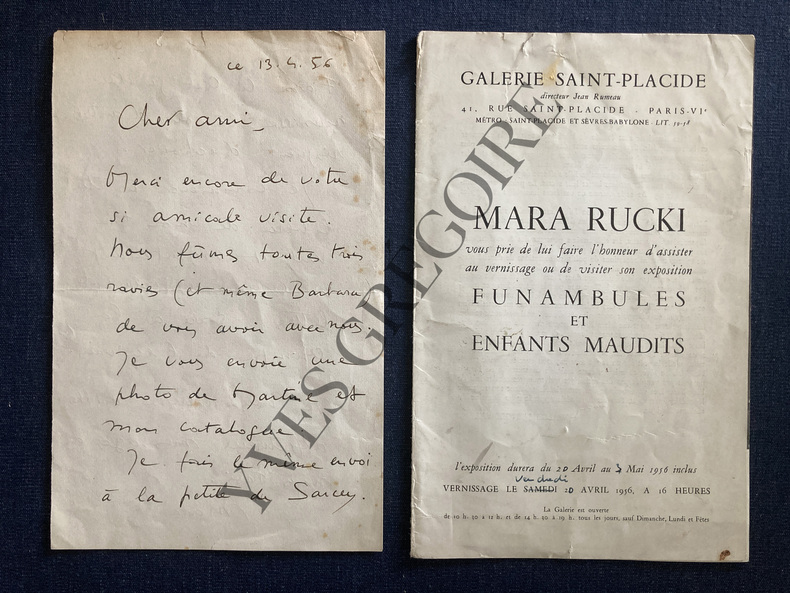 ce 13.4.56
Cher ami,
Merci encore de votre
si amicale visite.
Nous fûmes toutes trois
ravies (et même Barbara)
de vous avoir avec nous.
Je vous envoie une
photo de Martine et
mon catalogue
Je fais le même envoi
à la petite de Sarcey.
GALERIE SAINT-PLACIDE
directeur Jean Rumeau
41, RUE SAINT-PLACIDE - PARIS-VIe
MÉTRO - SAINT-PLACIDE ET SÈVRES-BABYLONE - LIT.
MARA RUCKI
vous prie de lui faire l'honneur d'assister
au vernissage ou de visiter son exposition
FUNAMBULES
ET
ENFANTS MAUDITS
l'exposition durera du 20 Avril au 3 Mai 1956 inclus
Vendredi
VERNISSAGE LE SAMEDI 20 AVRIL 1956, A 16 HEURES
La Galerie est ouverte
de 10 h. 30 à 12 h. et de 14 h. 30 à 19 h. tous les jours, sauf Dimanche, Lundi et Fêtes
YVES GRÉGOIRE